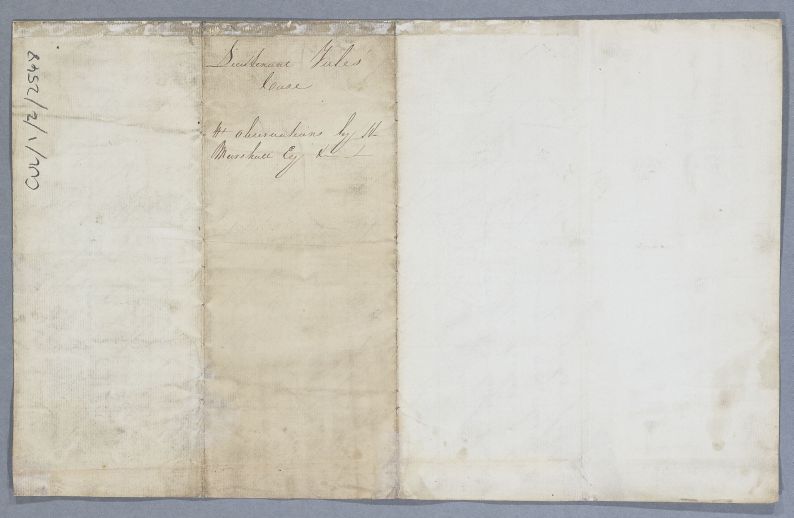 Lieutenant Yule's
Case
observations by H
Marshall Esq &c
CUL/1/2/2548